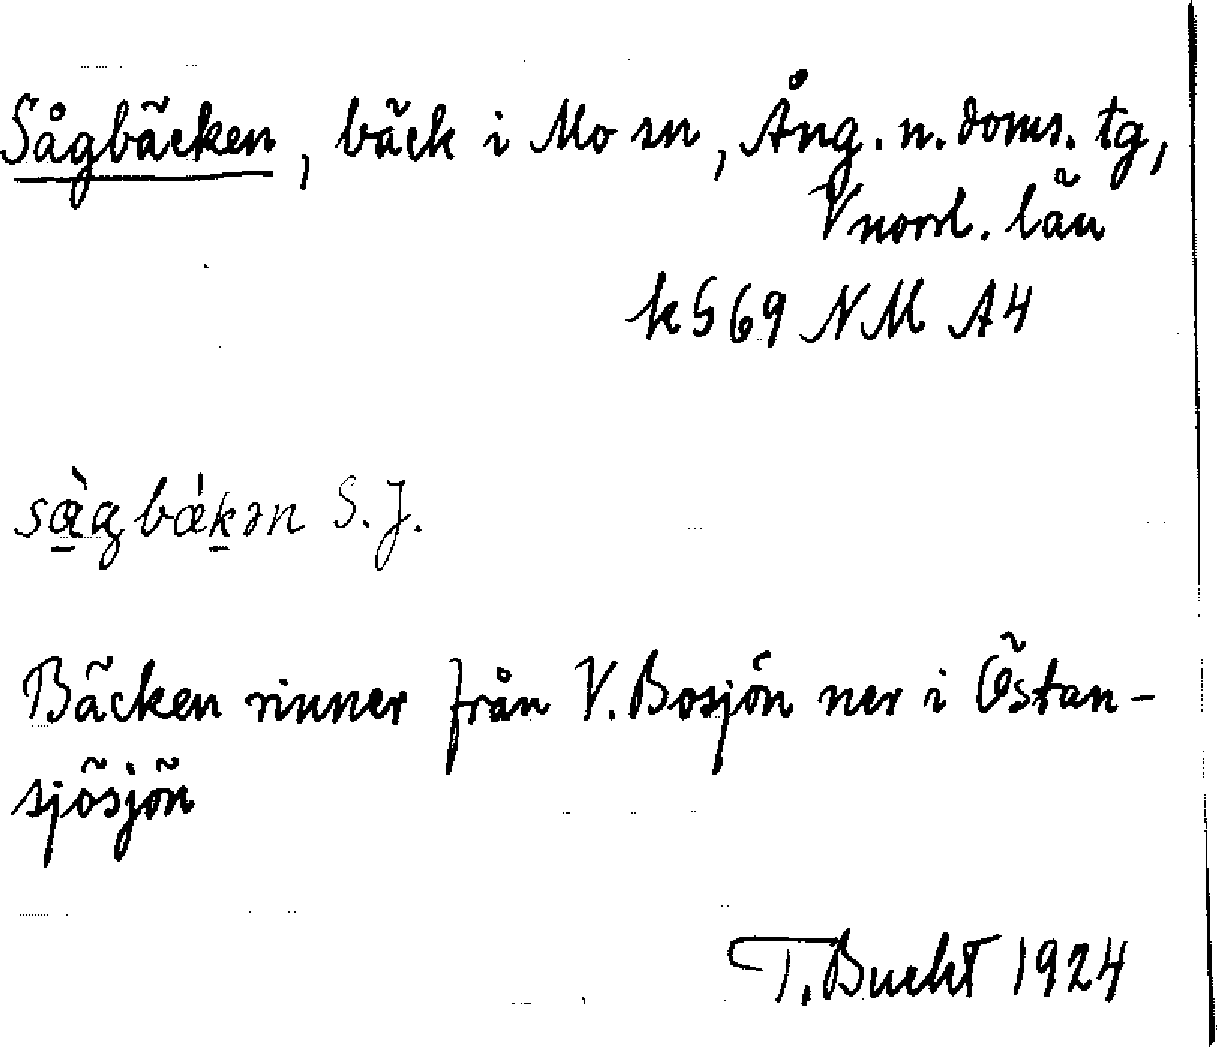 Sågbäcken, bäck i Mo sn, Ång. n. doms. tg,
Vnorrl. län
k G 69 NM A4
sàgbǽkən S. J.
Bäcken rinner från V. Bosjön ner i Östan-
sjösjön
T. Bucht 1924